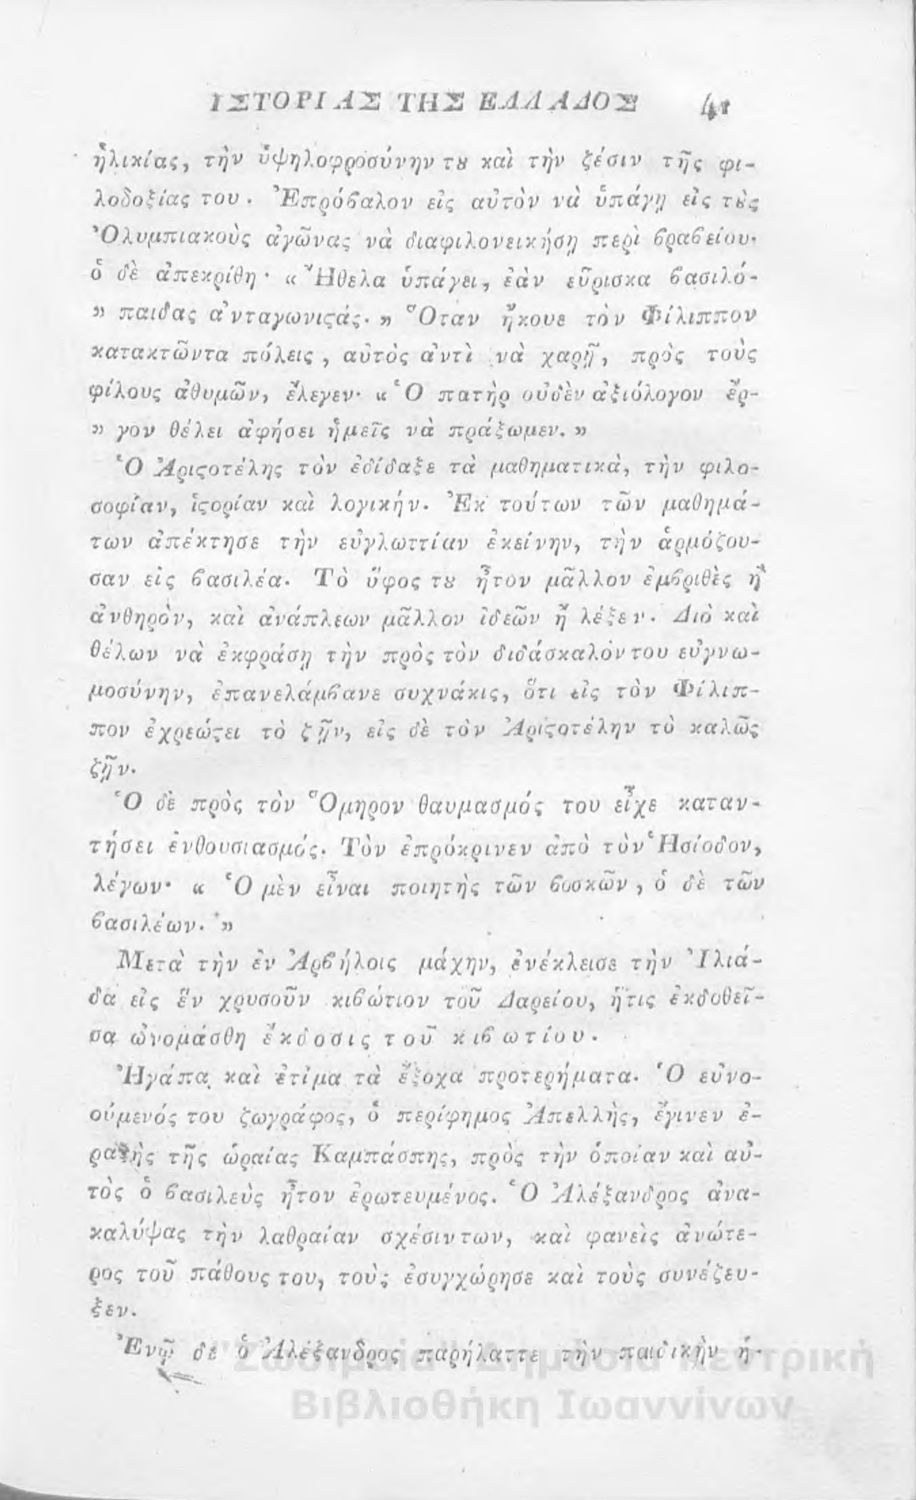 ΙΣΤΟΡΙΑΣ ΤΗΣ ΕΛΛΑΔΟΣ 41
ἡλικίας, τὴν ὑψηλοφροσύνην τȣ καὶ τὴν ζέσιν τῆς φι-
λοδοξίας του. Ἐπρόϐαλον εἰς αὐτὸν νὰ ὑπάγῃ εἰς τȣ̀ς
Ὀλυμπιακοὺς ἀγῶνας νὰ διαφιλονεικήσῃ περὶ ϐραϐείου·
ὁ δὲ ἀπεκρίθη· « Ἤθελα ὑπάγει, ἐὰν εὕρισκα ϐασιλό-
» παιδας ἀνταγωνιϛάς. » Ὅταν ἤκουε τὸν Φίλιππον
κατακτῶντα πόλεις, αὐτὸς ἀντὶ νὰ χαρῇ, πρὸς τοὺς
φίλους ἀθυμῶν, ἔλεγεν· « Ὁ πατὴρ οὐδὲν ἀξιόλογον ἔρ-
» γον θέλει ἀφήσει ἡμεῖς νὰ πράξωμεν. »
Ὁ Ἀριϛοτέλης τὸν ἐδίδαξε τὰ μαθηματικὰ, τὴν φιλο-
σοφίαν, ἱϛορίαν καὶ λογικήν. Ἐκ τούτων τῶν μαθημά-
των ἀπέκτησε τὴν εὐγλωττίαν ἐκείνην, τὴν ἁρμόζου-
σαν εἰς ϐασιλέα. Τὸ ὕφος τȣ ἦτον μᾶλλον ἐμϐριθὲς ἢ
ἀνθηρὸν, καὶ ἀνάπλεων μᾶλλον ἰδεῶν ἢ λέξεν. Διὸ καὶ
θέλων νὰ ἐκφράσῃ τὴν πρὸς τὸν διδάσκαλόν του εὐγνω-
μοσύνην, ἐπανελάμϐανε συχνάκις, ὅτι εἰς τὸν Φίλιπ-
πον ἐχρεώϛει τὸ ζῇν, εἰς δὲ τὸν Ἀριϛοτέλην τὸ καλῶς
ζῇν.
Ὁ δὲ πρὸς τὸν Ὅμηρον θαυμασμός του εἶχε καταν-
τήσει ἐνθουσιασμός. Τὸν ἐπρόκρινεν ἀπὸ τὸν Ἡσίοδον,
λέγων· « Ὁ μὲν εἶναι ποιητὴς τῶν ϐοσκῶν, ὁ δὲ τῶν
ϐασιλέων. »
Μετὰ τὴν ἐν Ἀρϐήλοις μάχην, ἐνέκλεισε τὴν Ἰλιά-
δα εἰς ἓν χρυσοῦν κιϐώτιον τοῦ Δαρείου, ἥτις ἐκδοθεῖ-
σα ὠνομάσθη ἔκδοσις τοῦ κιϐωτίου.
Ἠγάπα καὶ ἐτίμα τὰ ἔξοχα προτερήματα. Ὁ εὐνο-
ούμενός του ζωγράφος, ὁ περίφημος Ἀπελλῆς, ἔγινεν ἐ-
ραϛὴς τῆς ὡραίας Καμπάσπης, πρὸς τὴν ὁποίαν καὶ αὐ-
τὸς ὁ ϐασιλεὺς ἦτον ἐρωτευμένος. Ὁ Ἀλέξανδρος ἀνα-
καλύψας τὴν λαθραίαν σχέσιν των, καὶ φανεὶς ἀνώτε-
ρος τοῦ πάθους του, τοὺς ἐσυγχώρησε καὶ τοὺς συνέζευ-
ξεν.
Ἐνῷ δὲ ὁ Ἀλέξανδρος παρήλαττε τὴν παιδικὴν ἡ-
"Ζωσιμαία" Δημόσια Κεντρική
Βιβλιοθήκη Ιωαννίνων